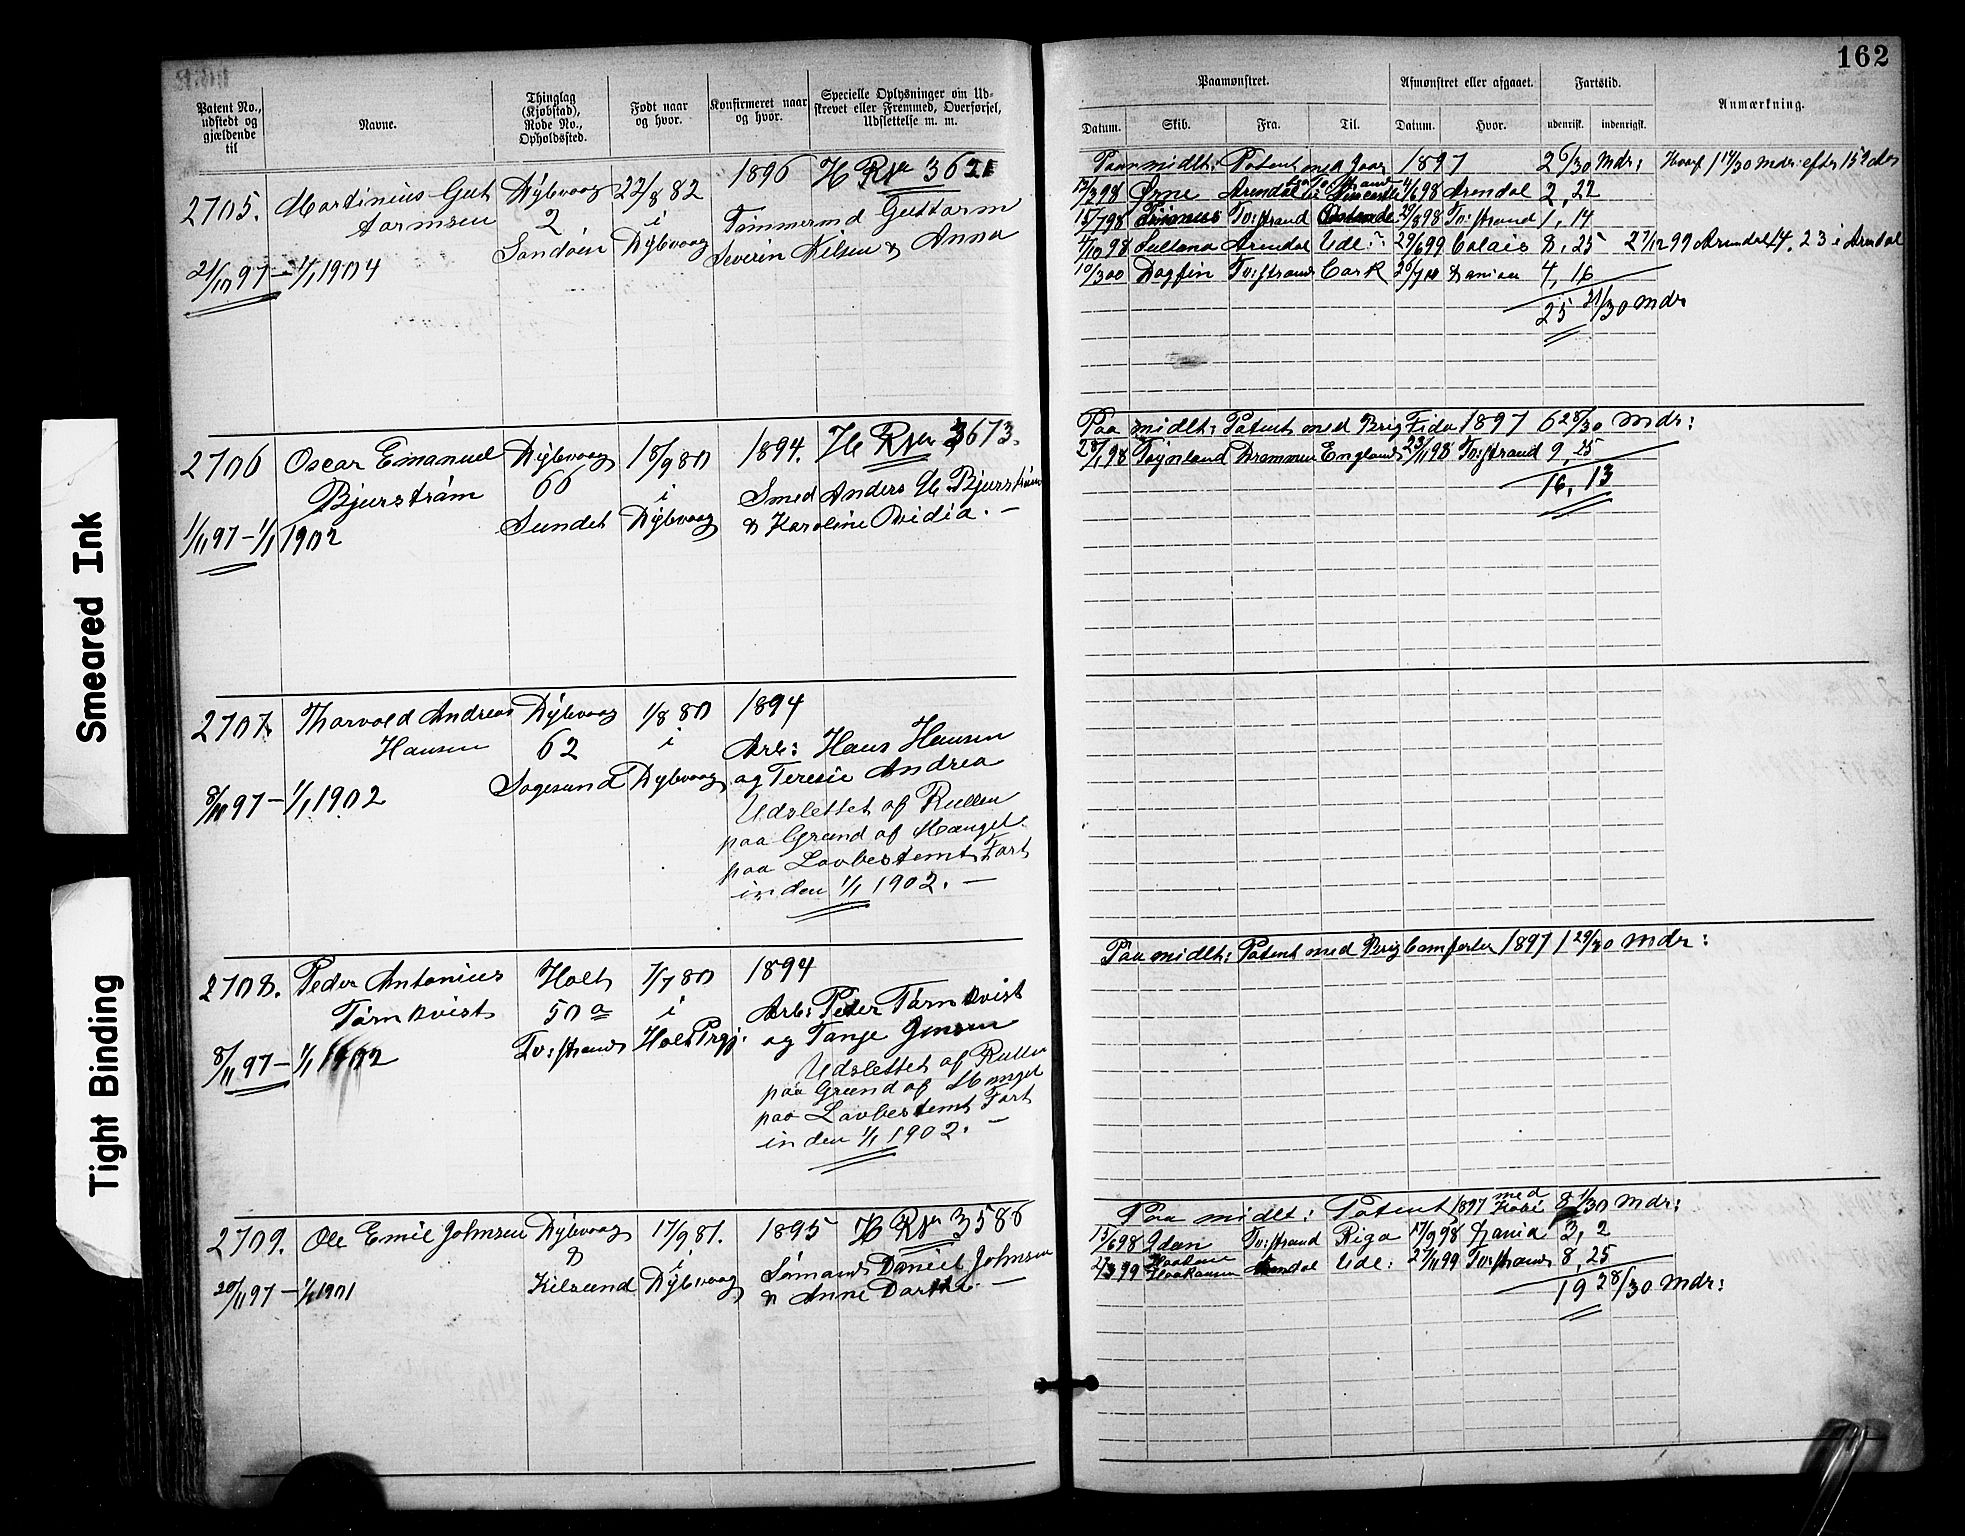 162
Patent No.,
udstedt og
gjældende
til
Navne.
Thinglag
(Kjøbstad),
Rode No.,
Opholdssted.
Født naar
og hvor.
Konfirmeret naar
og hvor.
Specielle Oplysninger om Ud-
skrevet eller Fremmed, Overførsel,
Udslettelse m. m.
Paamønstret.
Afmønstret eller afgaaet.
Fartstid.
Anmærkning.
Datum. Skib. Fra. Til. Datum. Hvor. udenrisk. indenrigsk.
2705. Martinius Gut
tormsen
21/10 97 – 1/1 1904
Dybvaag
2
Sandøen
22/8 82
i
Dybvaag
1896 H Rl 3621
Tømmermd Guttorm
Severin Nilsen & Anna
Paa midlt: Patent med 1897 26/30 Mdr:
12/3 98 Ørne Arendal 98 Arendal 2, 22
15/7 98 Tv:strand 98 Tv:strand 1, 14
4/10 98 Sultana Arendal Udl: 29/6 99 Calais 8, 25 27/12 99 Arendal 14. 23 i Arendal
10/3 00 Dagfin Tv:strand Cork 4, 16
25 21/30 Mdr
2706 Oscar Emanuel
Bjurstrøm
1/11 97 – 1/1 1902
Dybvaag
66
Sundet
18/9 80
i
Dybvaag
1894. 3673.
Smed Anders M. Bjurstrøm
& Karoline Ovidia. –
Paa midlt: Patent med Brig Fido 1897 6 28/30 Mdr:
28/1 98 Føynland Drammen England 23/11 98 Tv:strand 9, 15
16, 13
2707. Thorvald Andreas
Hansen
8/11 97 – 1/1 1902
Dybvaag
62
Sagesund
1/8 80
i
Dybvaag
1894
Arb: Hans Hansen
og Teresie Andrea
Udslettet af Rullen
paa Grund af Mangel
paa Lovbestemt Fart
inden 1/1 1902. –
2708. Peder Antonius
Tørnkvist
8/11 97 – 1/1 1902
Holt
50 a
Tv:strand
7/7 80
i
Holt Prgj:
1894
Arb: Peter Tørnkvist
og Tanje Jensen
Udslettet af Rullen
paa Grund af Mangel
paa Lovbestemt Fart
inden 1/1 1902. –
Paa midlt: Patent med Brig 1897 1 29/30 Mdr:
2709. Ole Emil Johnsen
20/11 97 – 1/1 1901
Dybvaag
8
Kilsund
17/9 81.
i
Dybvaag
1895 3586
Sømand Daniel Johnsen
& Anne Dorthe. –
Paa midlt: Patent 1897 med 8 1/30 Mdr:
15/6 98 Idun Tv:strand Riga 17/9 98 3, 2
99 Haakonsen Arendal Udl: 27/11 99 Tv:strand 8, 25
19 28/30 Mdr:
Smeared Ink
Tight Binding